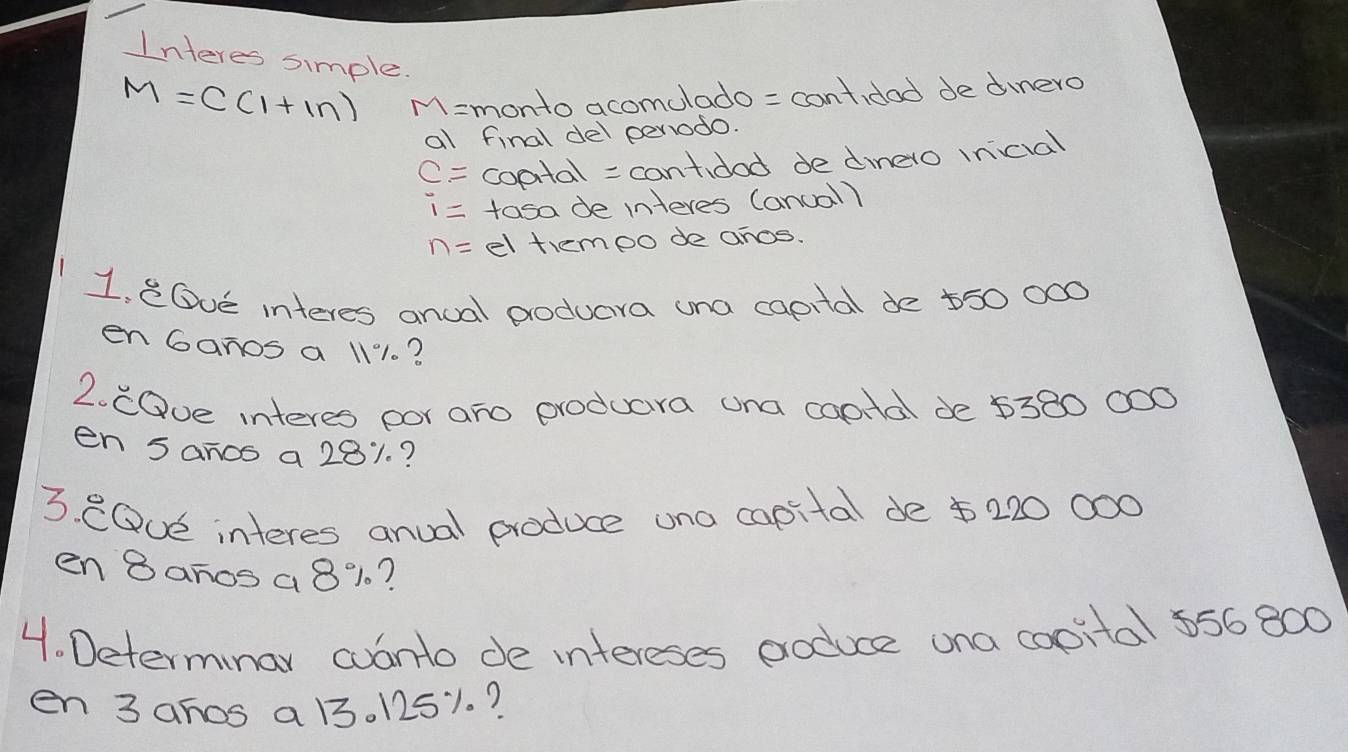 Interes simple.
M = C(1+in) M=monto acomulado = cantidad de dinero
al final del periodo.
C = capital = cantidad de dinero inicial
i = tasa de interes (anual)
n = el tiempo de años.
1. ¿Qué interes anual producira una capital de $50 000
en 6 años a 11%?
2. ¿Que interes por año producira una capital de $380 000
en 5 años a 28%?
3. ¿Qué interes anual produce una capital de $220 000
en 8 años a 8%?
4. Determinar cuánto de intereses produce una capital $56 800
en 3 años a 13.125%?